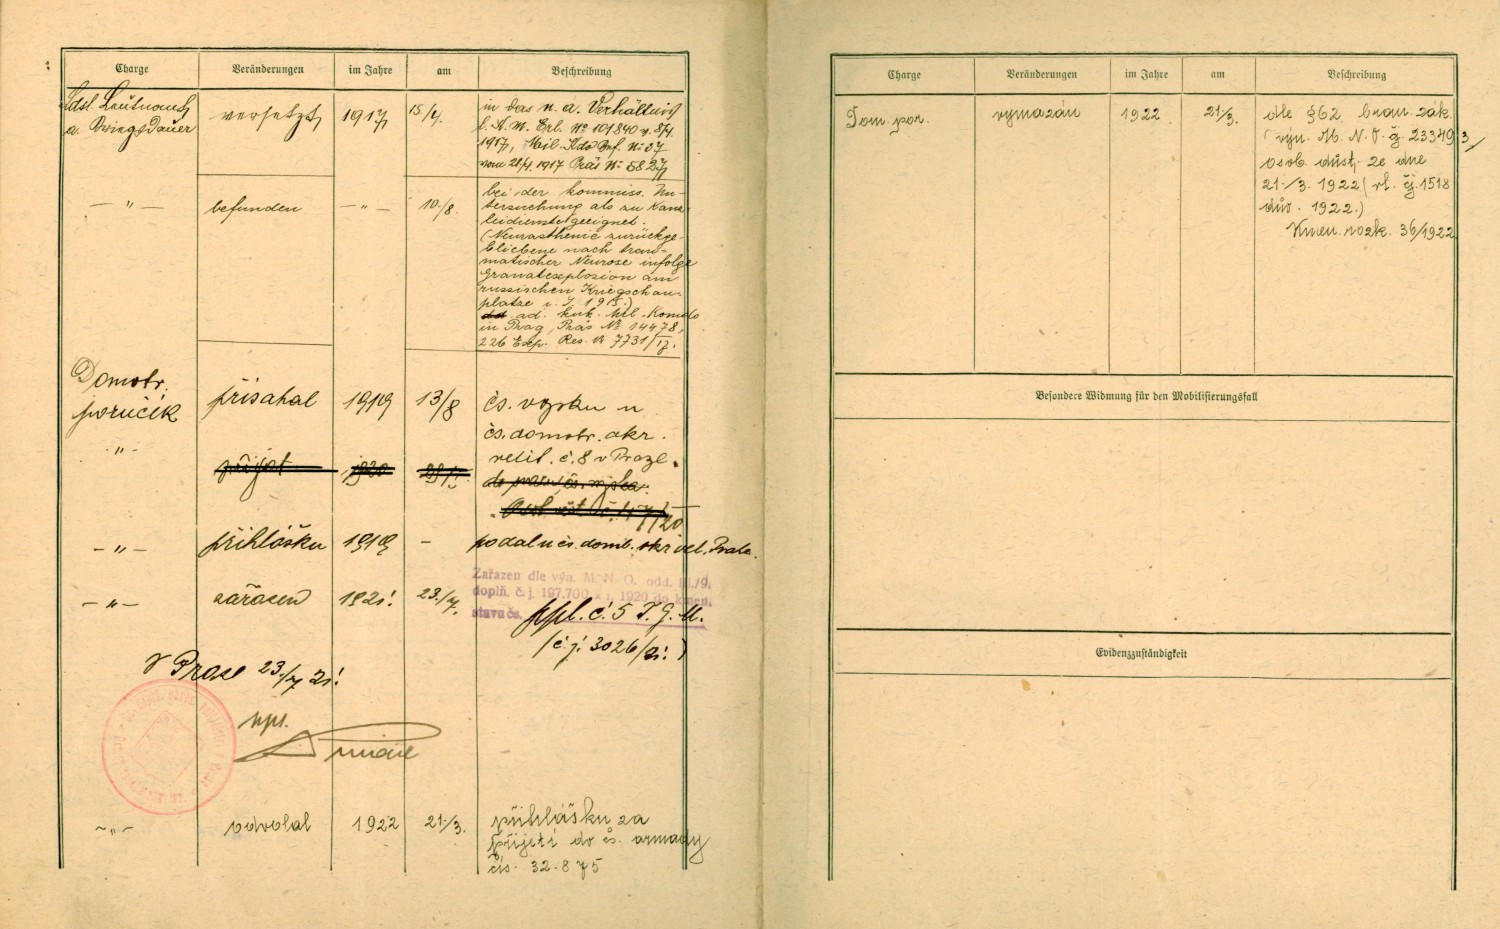 Charge Veränderungen im Jahre am Beschreibung
Ldst. Leutnant versetzt 1917 15/4. in das n. a. Verhältnis
a. Kriegsdauer k. K. M. Erl. No 101840 v. 8/4
1917, Mil. Kdo Bef. No 37
vom 21/4 1917 Präs No 5827
— " — befunden — " — 10./8. bei der kommiss. Un-
tersuchung als zu Kanz-
leidienste geeignet.
(Neurasthenie zurückge-
bliebene nach trau-
matischer Neurose infolge
Granatexplosion am
russischen Kriegschau-
platze i. J. 1915.)
ad. kuk. Mil. Komdo
in Prag, Präs No 14478,
226 Exp. Res. No 7731/17.
Domobr.
poručík přísahal 1919 13/8 čs. vojsku u
čs. domobr. okr.
velit. č. 8 v Praze.
" přijat 1920
do
7/20
— " — přihlášku 1919 — podal u čs. domb. okr vel. Praha.
— " — zařazen 1921. 23./7. Zařazen dle výn. M. N. O. odd. III./9.
doplň. č. j. 197.700 z r. 1920 do kmen.
stavu čs. ppl. č. 5 T. G. M.
(č. j. 3026/21.)
V Praze 23./7 21.
npl.
~ " ~ odvolal 1922 21./3. přihlášku za
přijetí do čs. armády
čís. 32.875
Charge Veränderungen im Jahre am Beschreibung
Dom. por. vymazán 1922 21./3. dle § 62 bran. zák.
(výn. M. N. O. č. 23349 3/
osob. důst. ze dne
21./3. 1922 (vl. čj. 1518
dův. 1922.)
Kmen. rozk. 36/1922
Besondere Widmung für den Mobilisierungsfall
Evidenzzuständigkeit